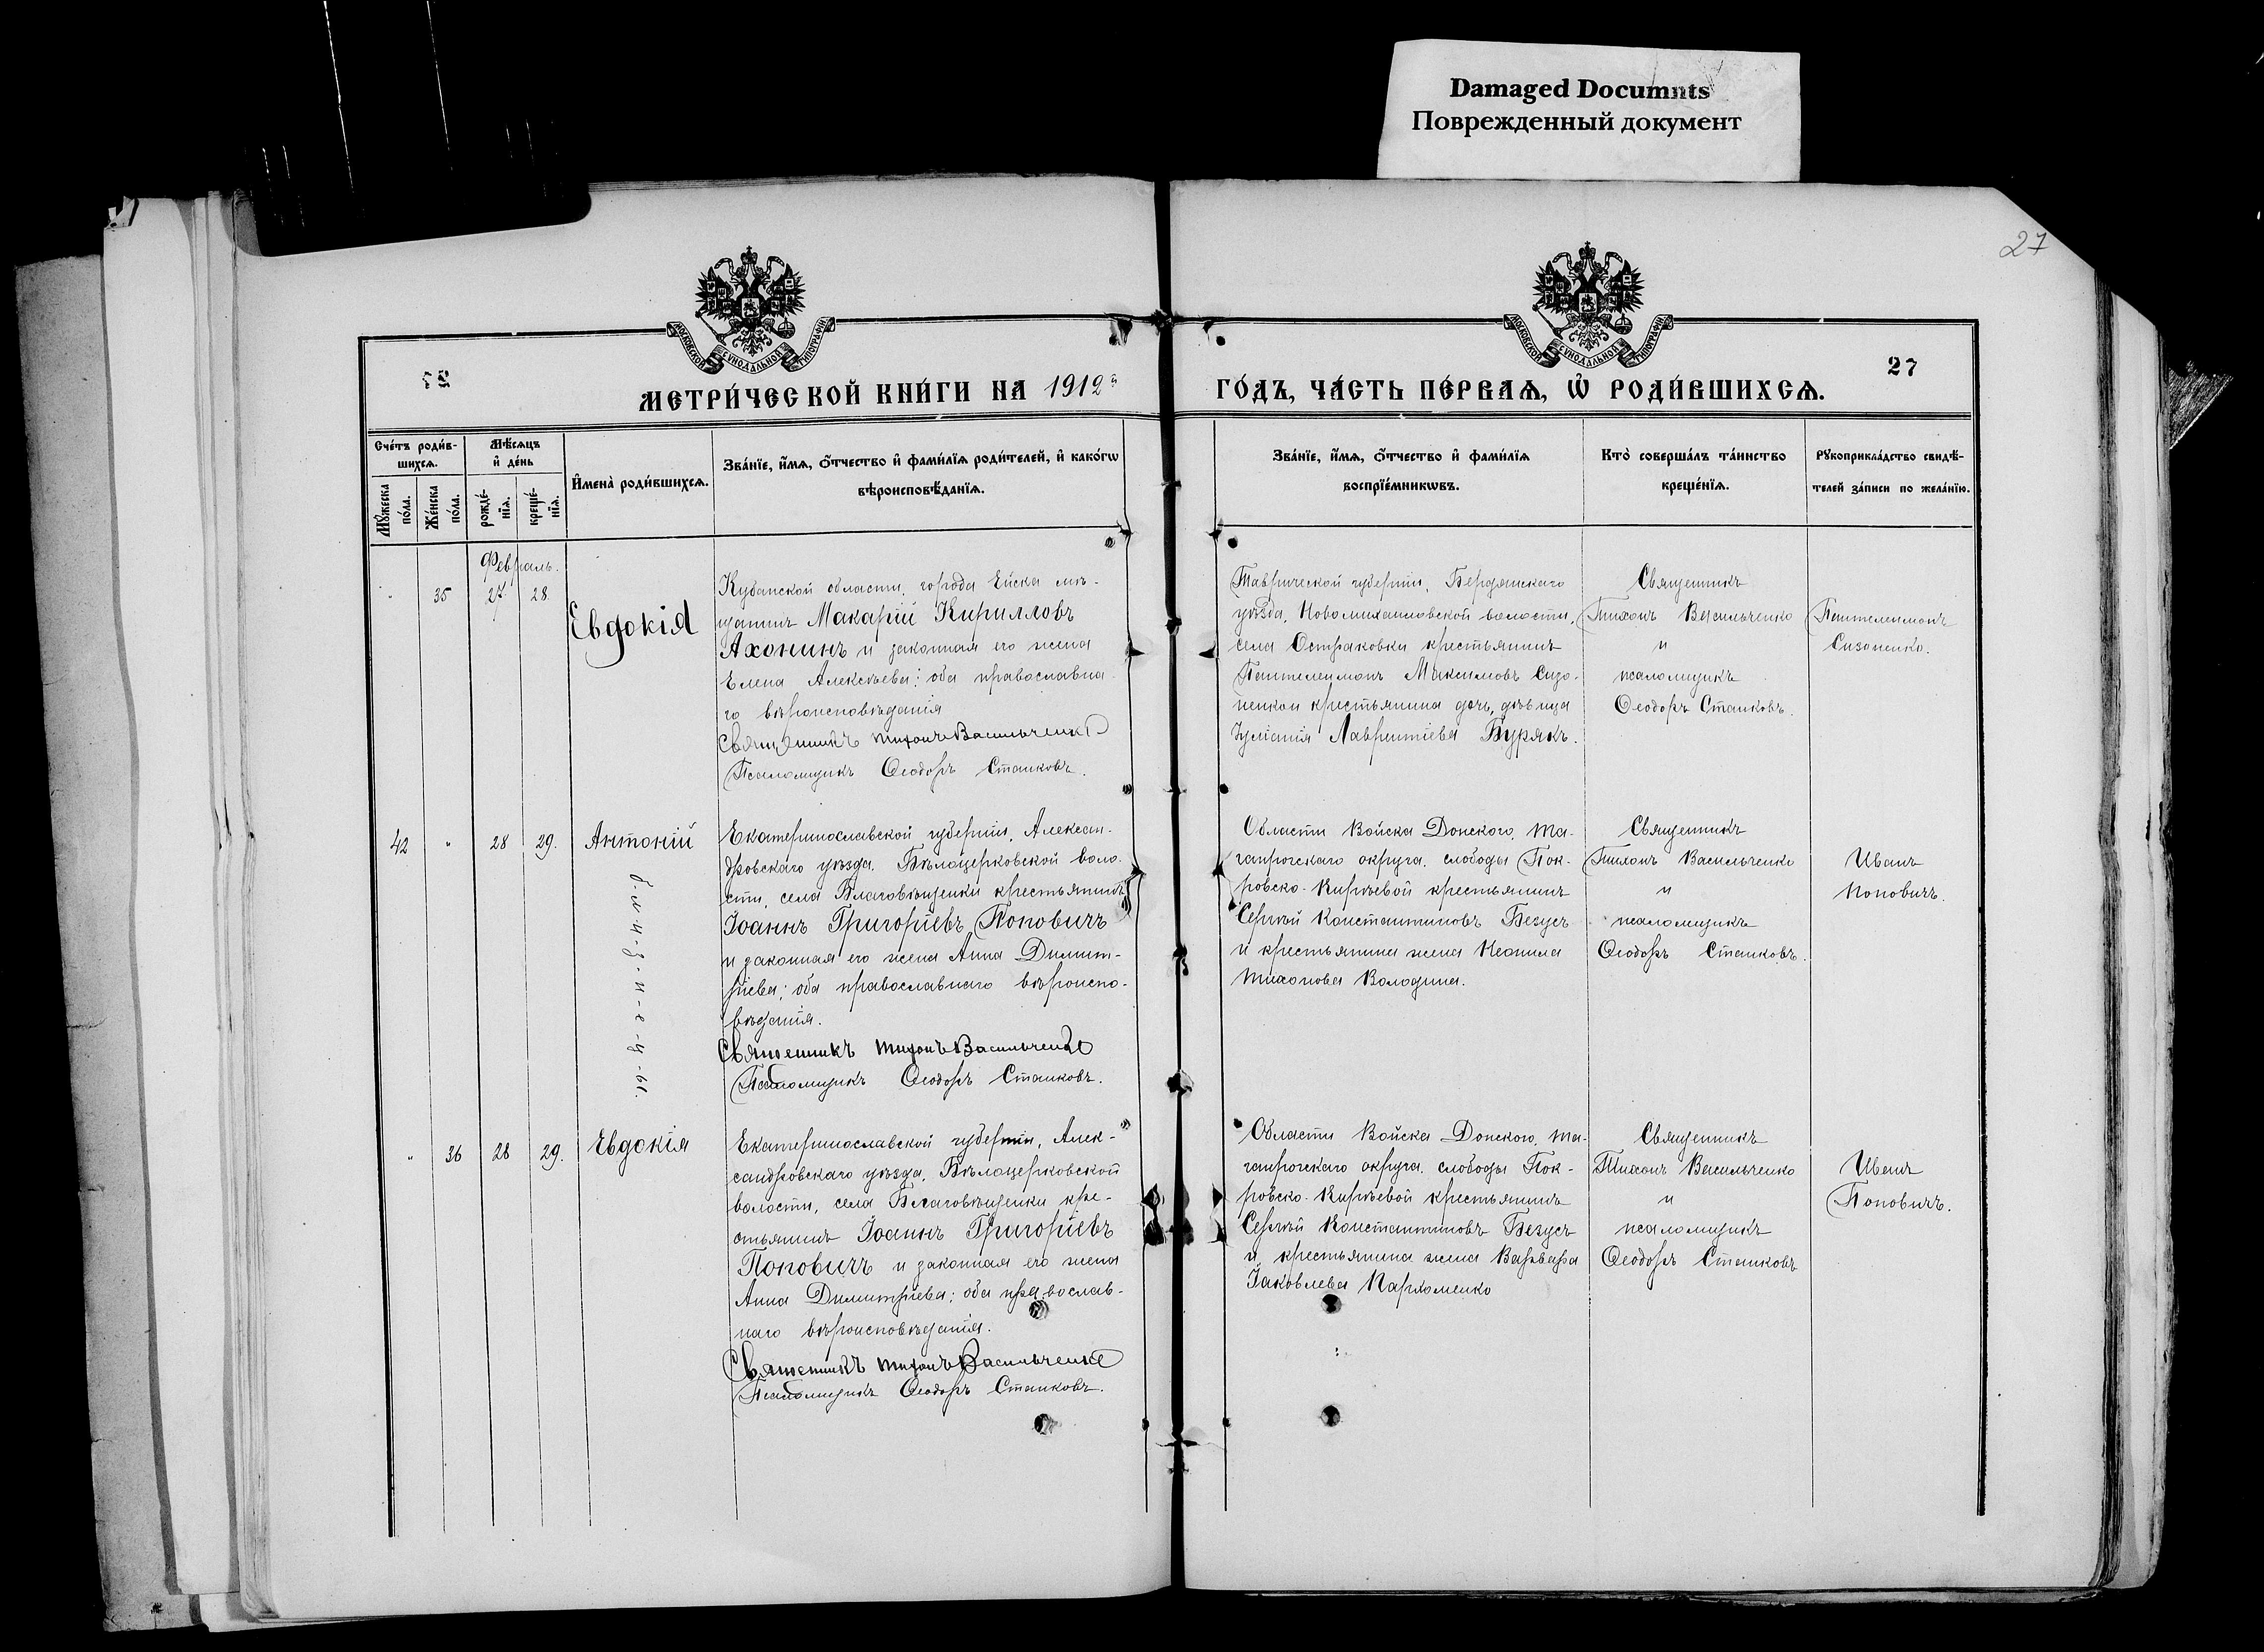 Damaged Documnts
Поврежденный документ
27
МОСКОВСКОЙ СѴНОДАЛЬНОЙ ТИПОГРАФІИ
МОСКОВСКОЙ СѴНОДАЛЬНОЙ ТИПОГРАФІИ
27
МЕТРИ́ЧЕСКОЙ КНИ́ГИ НА 1912й
ГО́ДЪ, ЧА́СТЬ ПЕ́РВАѦ, Ѡ҆ РОДИ́ВШИХСѦ.
Сче́тъ роди́в-
шихсѧ.
Мꙋ́жеска
по́ла.
Же́нска
по́ла.
Мѣ́сѧцъ
и҆ де́нь
рожде́-
нїѧ.
креще́-
нїѧ.
И҆мена̀ роди́вшихсѧ.
Зва́нїе, и҆́мѧ, ѻ҆́тчество и҆ фами́лїѧ роди́телей, и҆ како́гѡ
вѣроисповѣ́данїѧ.
Зва́нїе, и҆́мѧ, ѻ҆́тчество и҆ фами́лїѧ
воспрїе́мникѡвъ.
Кто̀ соверша́лъ та́инство
креще́нїѧ.
Рꙋкоприкла́дство свидѣ́-
телей за́писи по жела́нїю.
Февраль.
" 35 27. 28.
Евдокія
Кубанской области, города Ейска мѣ-
щанинъ Макарій Кирилловъ
Ахонинъ и законная его жена
Елена Алексѣева; оба православна-
го вѣроисповѣданія
Священникъ Тихонъ Васильченко
Псаломщикъ Ѳеодоръ Станковъ.
Таврической губерніи, Бердянскаго
уѣзда, Новомихайловской волости,
села Остраковки крестьянинъ
Пантелеимонъ Максимовъ Сизо-
ненко и крестьянина дочь, дѣвица
Іуліанія Лаврентіева Бурякъ.
Священникъ
Тихонъ Васильченко
и
псаломщикъ
Ѳеодоръ Станковъ.
Пантелеимонъ
Сизоненко.
42 " 28 29.
Антоній
б-л-и-з-н-е-ц-ы.
Екатеринославской губерніи, Алексан-
дровскаго уѣзда, Бѣлоцерковской воло-
сти, села Благовѣщенки крестьянинъ
Іоаннъ Григоріевъ Поповичъ
и законная его жена Анна Димит-
ріева; оба православнаго вѣроиспо-
вѣданія.
Священникъ Тихонъ Васильченко
Псаломщикъ Ѳеодоръ Станковъ.
Области Войска Донского, Та-
ганрогскаго округа, слободы Пок-
ровско-Кирѣевой крестьянинъ
Сергѣй Константиновъ Безусъ
и крестьянина жена Неонила
Тихонова Володина.
Священникъ
Тихонъ Васильченко
и
псаломщикъ
Ѳеодоръ Станковъ.
Иванъ
Поповичъ.
" 36 28 29.
Евдокія
Екатеринославской губерніи, Алек-
сандровскаго уѣзда, Бѣлоцерковской
волости, села Благовѣщенки кре-
стьянинъ Іоаннъ Григоріевъ
Поповичъ и законная его жена
Анна Димитріева; оба православ-
наго вѣроисповѣданія.
Священникъ Тихонъ Васильченко
Псаломщикъ Ѳеодоръ Станковъ.
Области Войска Донского, Та-
ганрогскаго округа, слободы Пок-
ровско-Кирѣевой крестьянинъ
Сергѣй Константиновъ Безусъ
и крестьянина жена Варвара
Іаковлева Пархоменко
Священникъ
Тихонъ Васильченко
и
псаломщикъ
Ѳеодоръ Станковъ
Иванъ
Поповичъ.